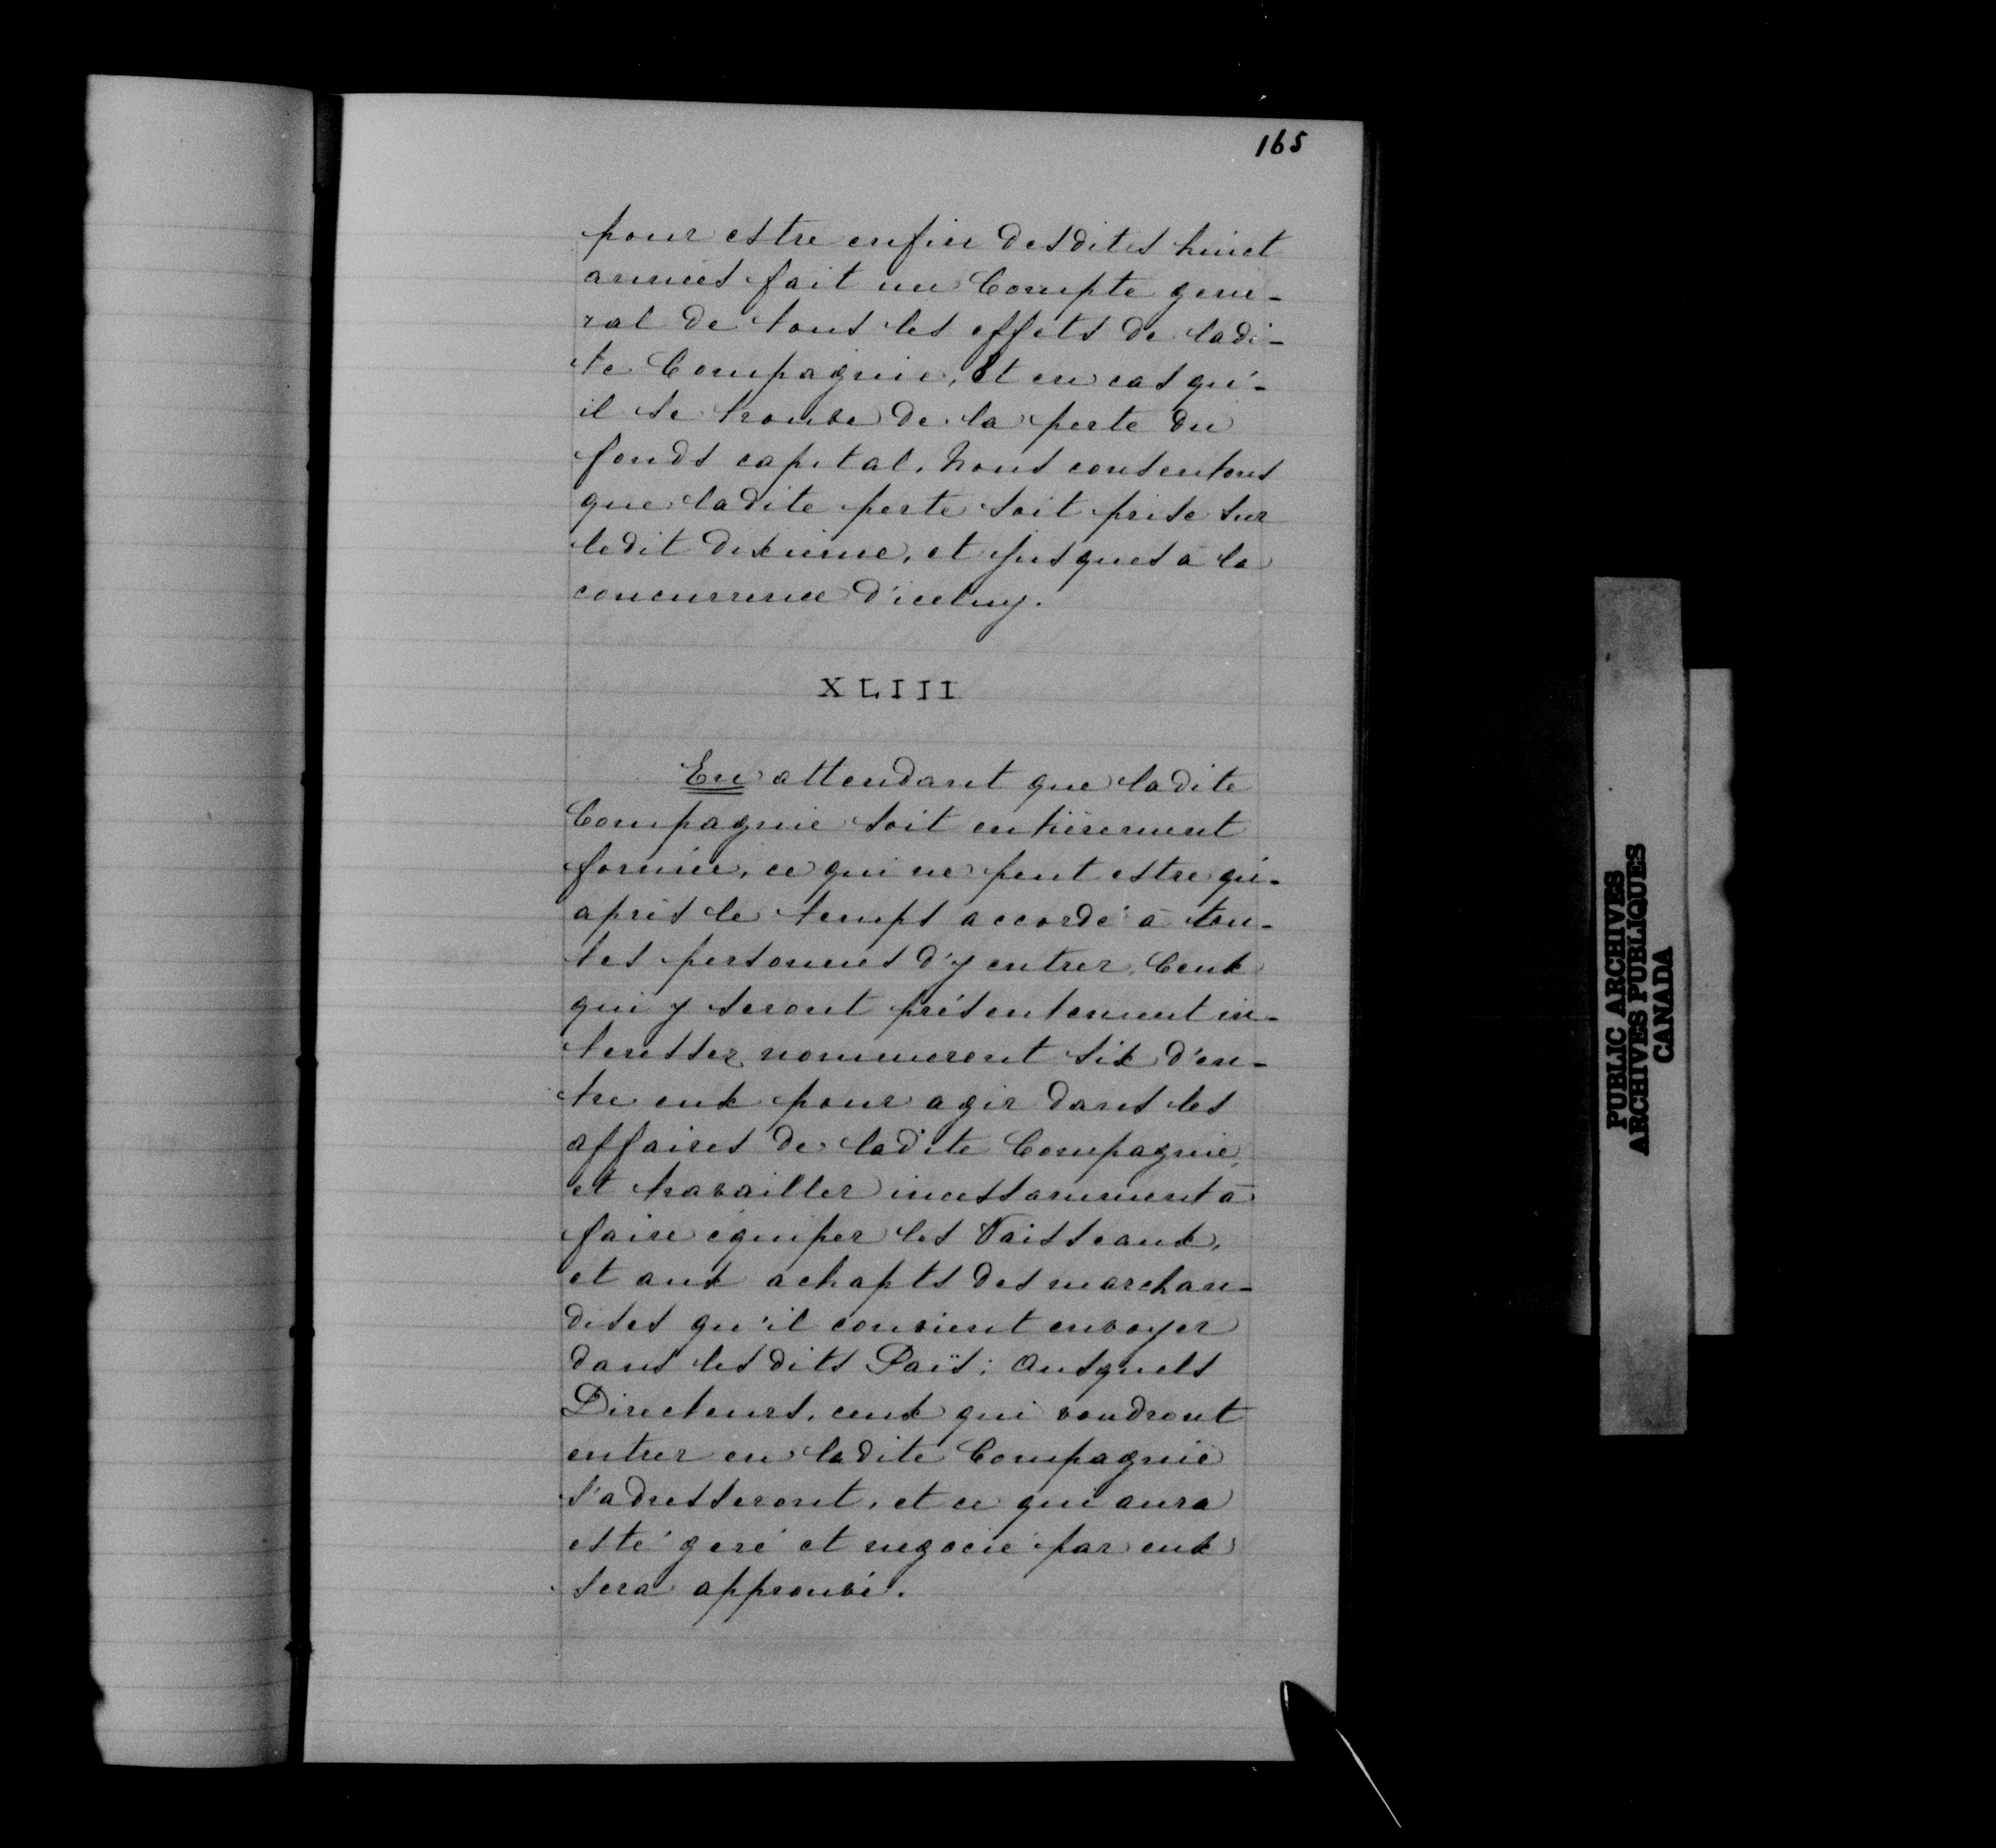 165
pour estre enfin desdites huict
années fait un Compte gene-
ral de tous les effets de ladi-
te Compagnie, Et en cas qu'-
il se trouve de la perte du
fonds capital, Nous consentons
que ladite perte soit prise sur
ledit dixième, et jusques à la
concurrence d'iceluy.
XLIII
En attendant que ladite
Compagnie soit entièrement
formée, ce qui ne peut estre qu'-
après le temps accordé à tou-
tes personnes d'y entrer, Ceux
qui y seront présentement in-
teressez nommeront six d'en-
tre eux pour agir dans les
affaires de ladite Compagnie,
et travailler incessamment à
faire équiper les Vaisseaux,
et aux achapts des marchan-
dises qu'il convient envoyer
dans lesdits Païs; Ausquels
Directeurs, ceux qui voudront
entrer en ladite Compagnie
s'adresseront, et ce qui aura
esté geré et négocié par eux
sera approuvé.
PUBLIC ARCHIVES
ARCHIVES PUBLIQUES
CANADA